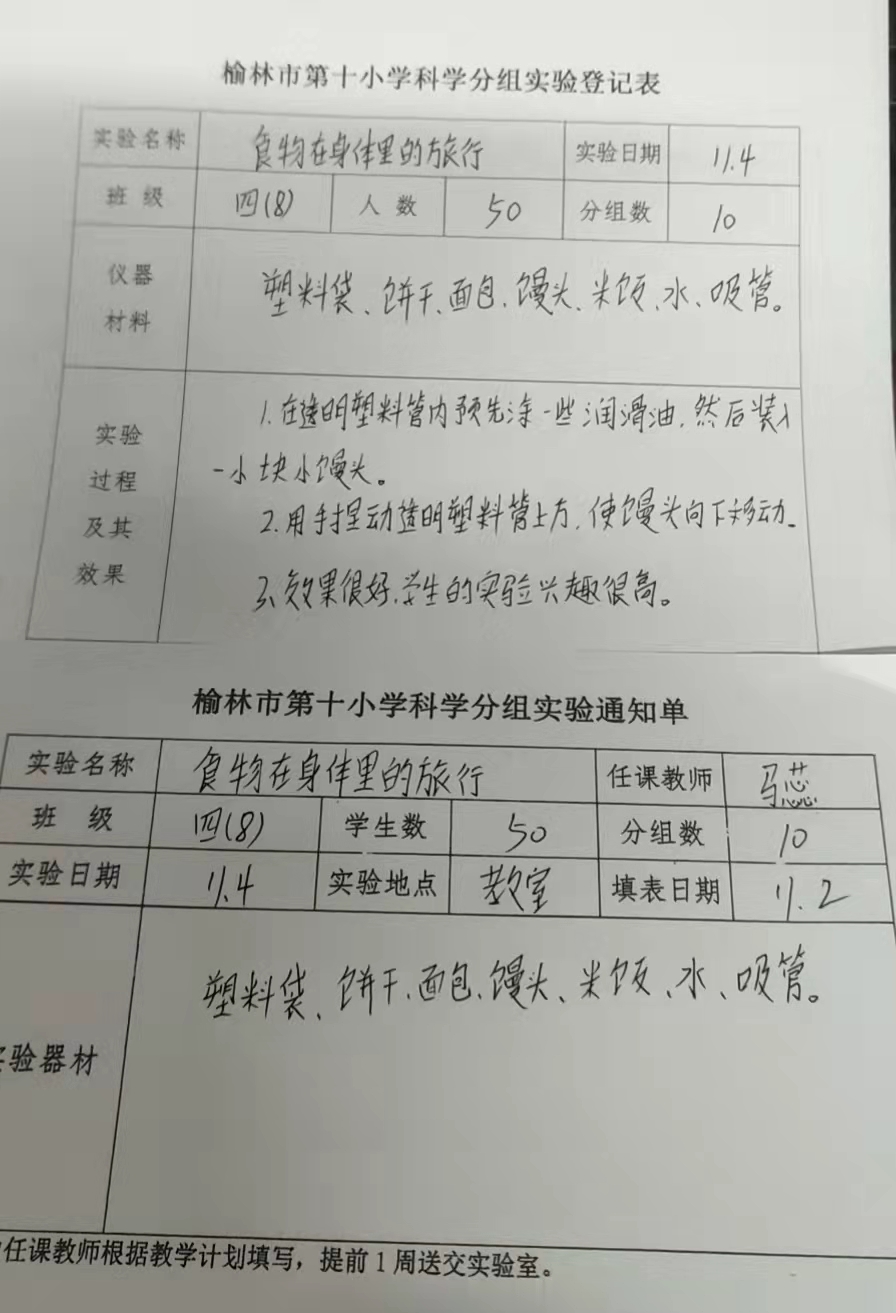 榆林市第十小学科学分组实验登记表
实验名称 食物在身体里的旅行 实验日期 11.4
班级 四(8) 人数 50 分组数 10
仪器
材料
塑料袋、饼干、面包、馒头、米饭、水、吸管。
实验
过程
及其
效果
1.在透明塑料管内预先涂一些润滑油,然后装入
一小块小馒头。
2.用手捏动透明塑料管上方,使馒头向下移动。
3、效果很好,学生的实验兴趣很高。
榆林市第十小学科学分组实验通知单
实验名称 食物在身体里的旅行 任课教师 马蕊
班级 四(8) 学生数 50 分组数 10
实验日期 11.4 实验地点 教室 填表日期 11.2
实验器材 塑料袋、饼干、面包、馒头、米饭、水、吸管。
任课教师根据教学计划填写,提前1周送交实验室。